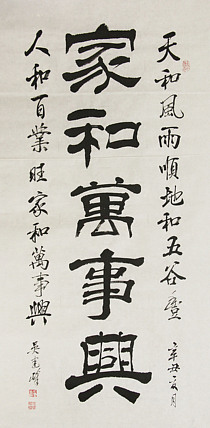 天和風雨順地和五谷豐
辛丑月
家和萬事興
人和百業旺家和萬事興
吳